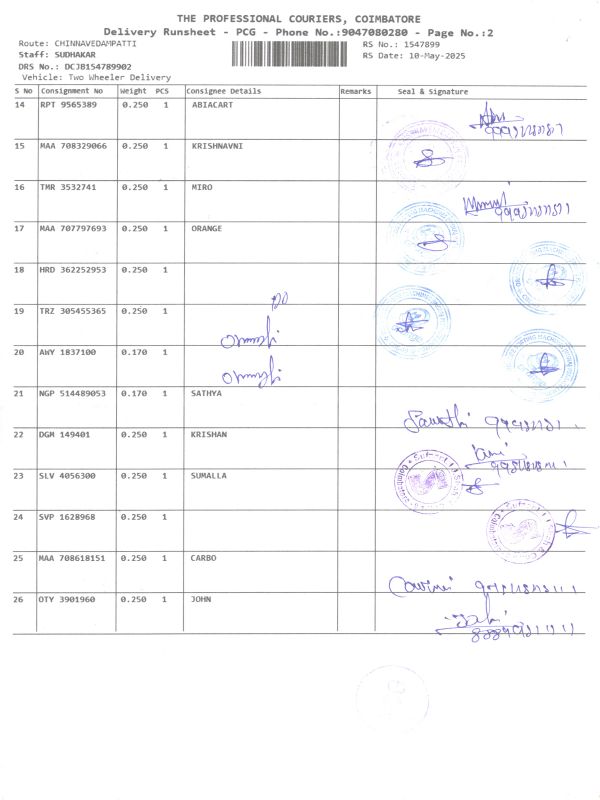 THE PROFESSIONAL COURIERS, COIMBATORE
Delivery Runsheet - PCG - Phone No.:9047080280 - Page No.:2
Route: CHINNAVEDAMPATTI RS No.: 1547899
Staff: SUDHAKAR RS Date: 10-May-2025
DRS No.: DCJB154789902
Vehicle: Two Wheeler Delivery
S No Consignment No Weight PCS Consignee Details Remarks Seal & Signature
14 RPT 9565389 0.250 1 ABIACART
15 MAA 708329066 0.250 1 KRISHNAVNI
16 TMR 3532741 0.250 1 MIRO
17 MAA 707797693 0.250 1 ORANGE
18 HRD 362252953 0.250 1
19 TRZ 305455365 0.250 1
20 AWY 1837100 0.170 1
21 NGP 514489053 0.170 1 SATHYA
22 DGM 149401 0.250 1 KRISHAN
23 SLV 4056300 0.250 1 SUMALLA
24 SVP 1628968 0.250 1
25 MAA 708618151 0.250 1 CARBO
26 OTY 3901960 0.250 1 JOHN